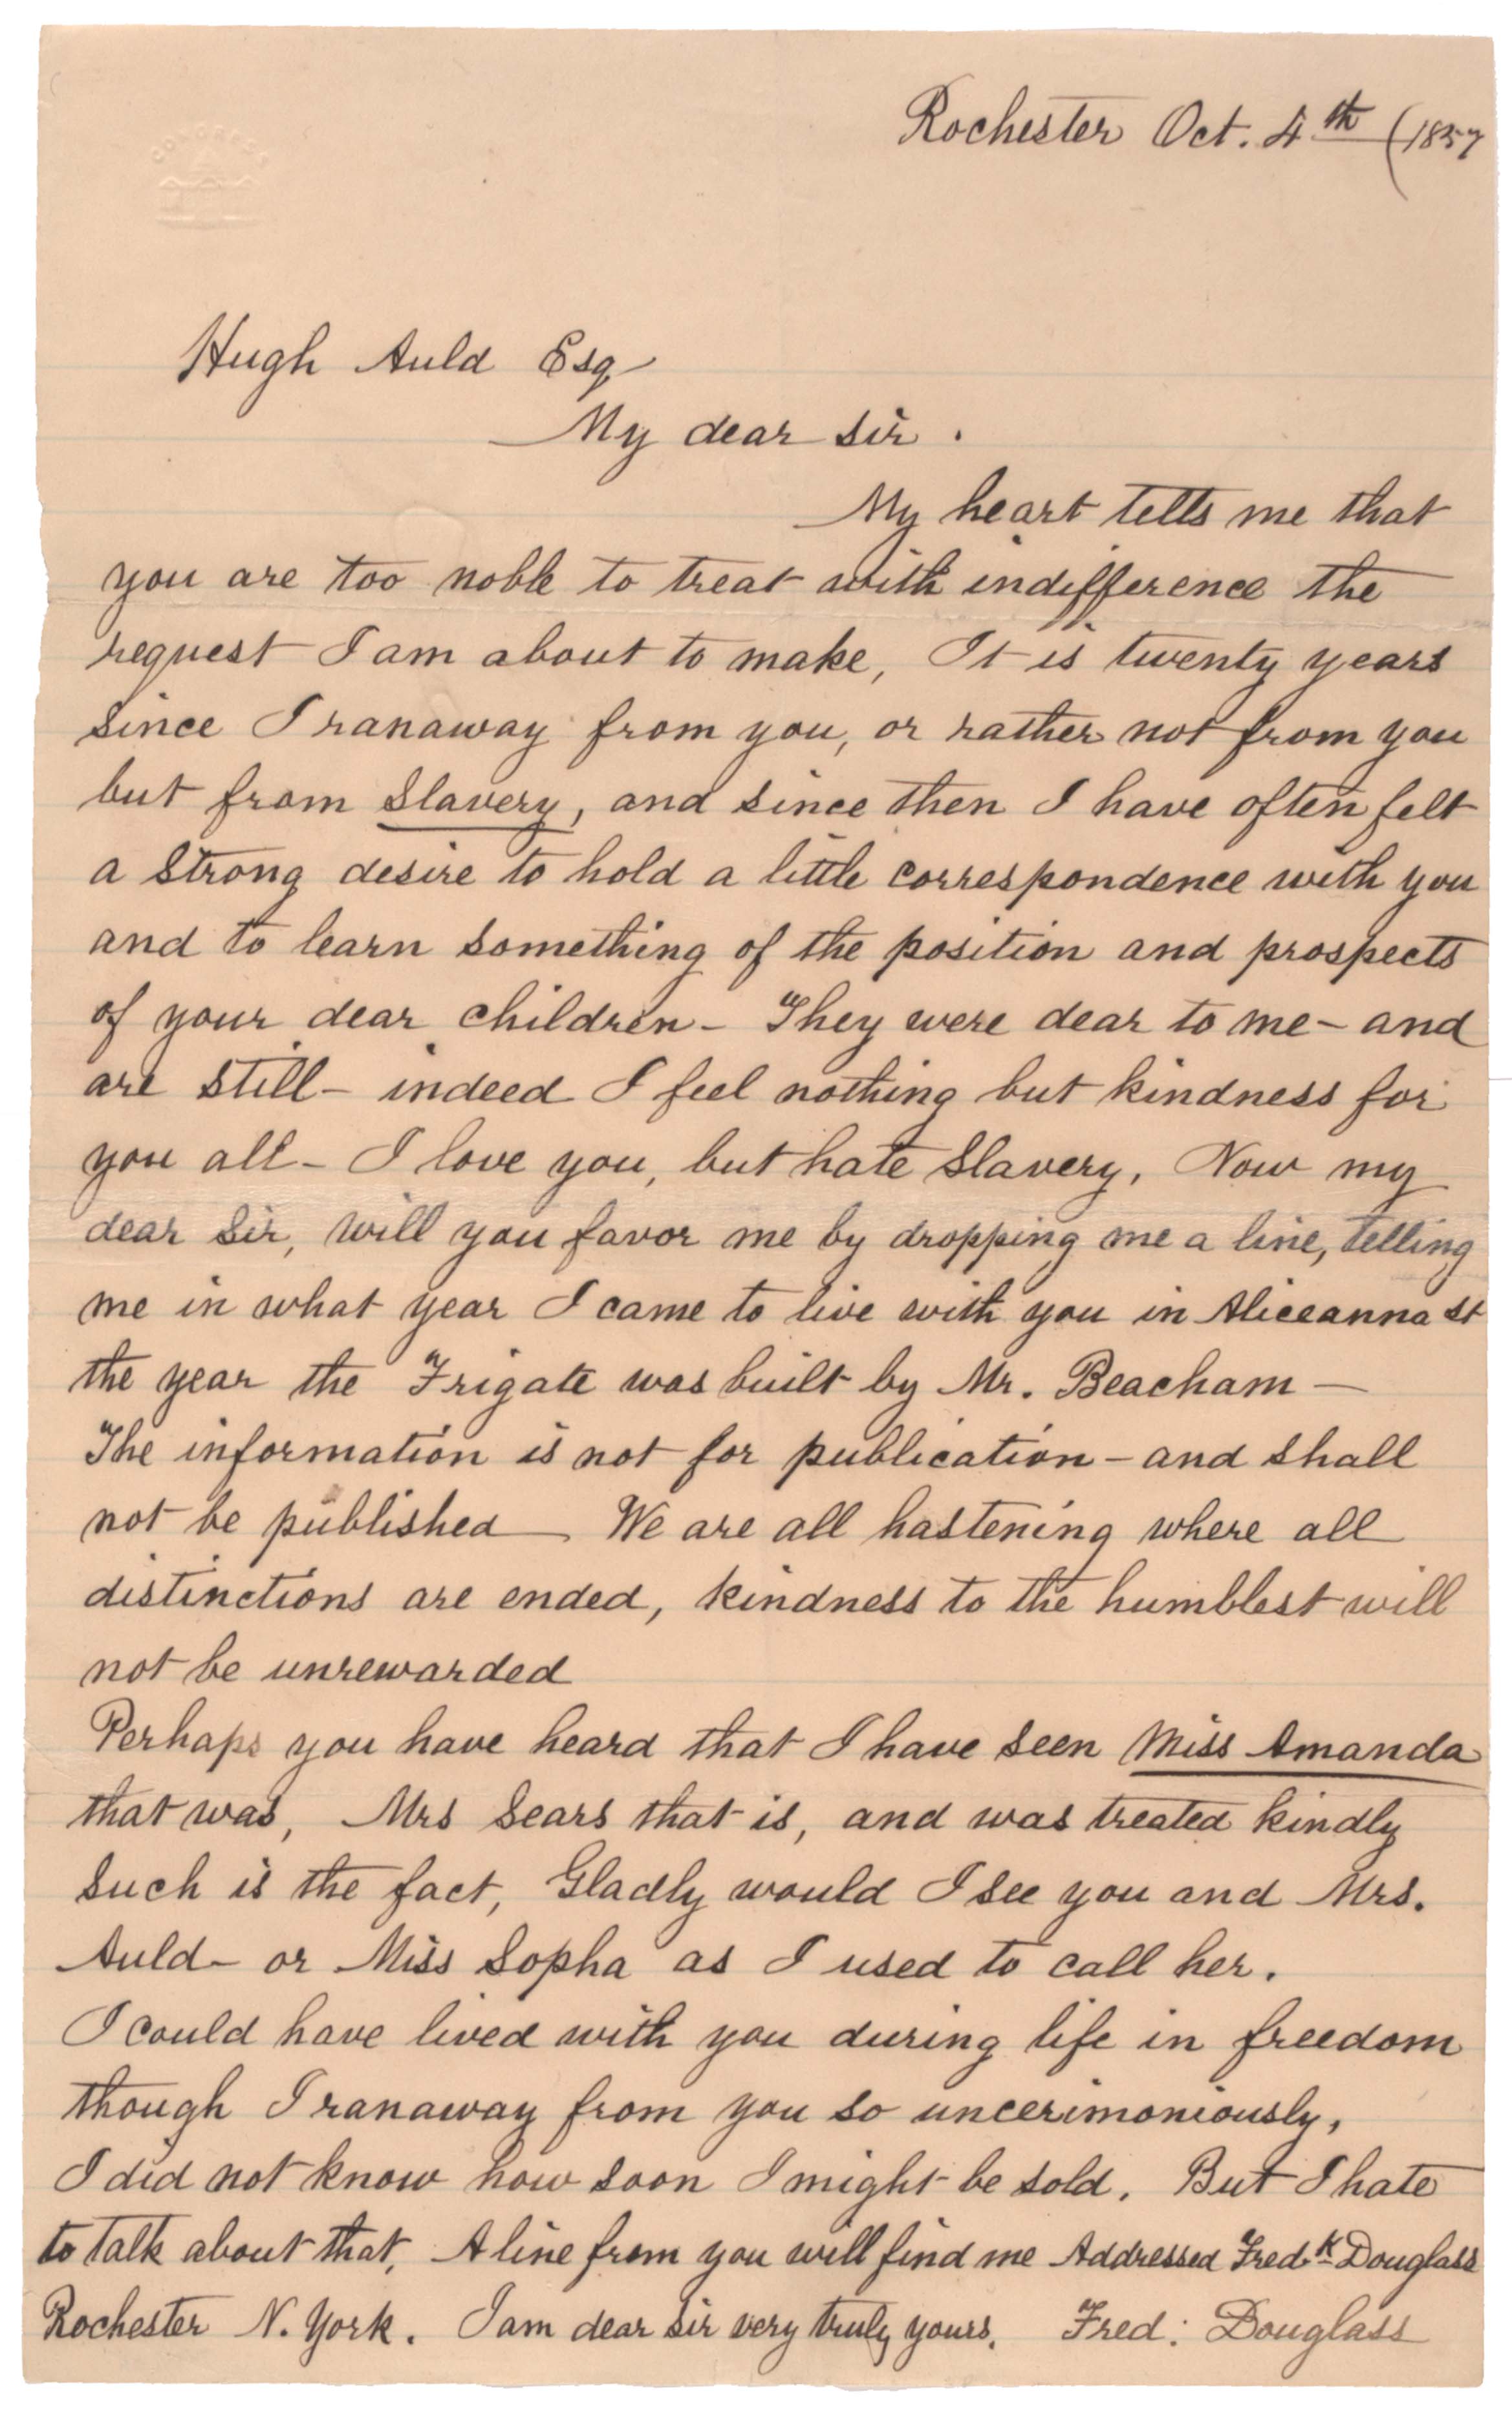 Rochester Oct. 4th (1857
Hugh Auld Esq
My dear sir.
My heart tells me that
you are too noble to treat with indifference the
request I am about to make, It is twenty years
since I ranaway from you, or rather not from you
but from Slavery, and since then I have often felt
a strong desire to hold a little correspondence with you
and to learn something of the position and prospects
of your dear children - They were dear to me - and
are still - indeed I feel nothing but kindness for
you all - I love you, but hate Slavery, Now my
dear Sir, will you favor me by dropping me a line, telling
me in what year I came to live with you in Aliceanna st
the year the Frigate was built by Mr. Beacham -
The information is not for publication - and shall
not be published We are all hastening where all
distinctions are ended, kindness to the humblest will
not be unrewarded
Perhaps you have heard that I have seen Miss Amanda
that was, Mrs Sears that is, and was treated kindly
such is the fact, Gladly would I see you and Mrs.
Auld - or Miss Sopha as I used to call her.
I could have lived with you during life in freedom
though I ranaway from you so uncerimoniously,
I did not know how soon I might be sold. But I hate
to talk about that, A line from you will find me Addressed Fredk Douglass
Rochester N. York. I am dear sir very truly yours. Fred: Douglass